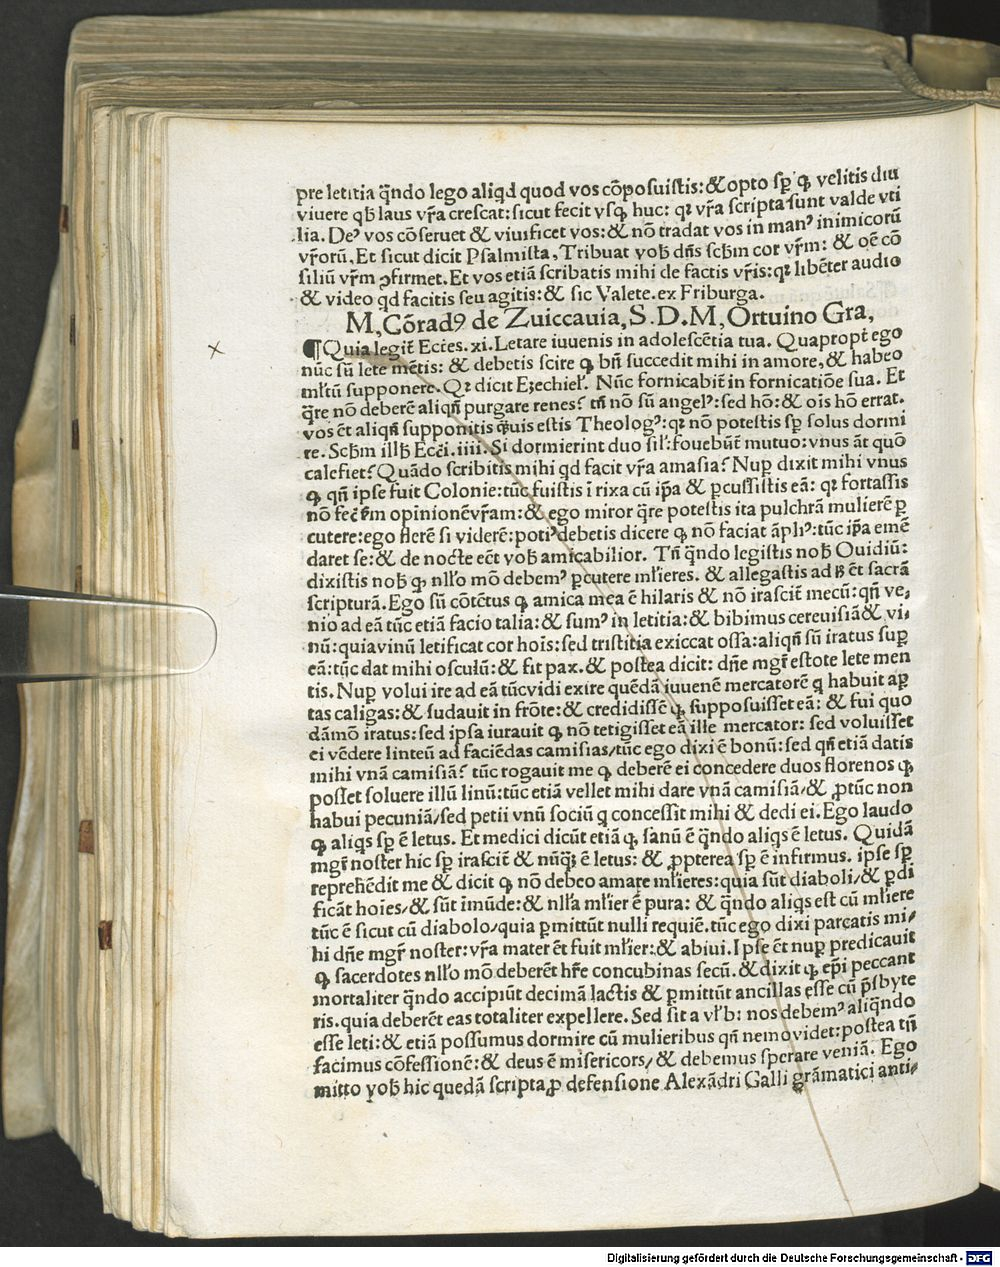 pre letitia q̃ndo lego aliqd quod vos cõposuistis: & opto sꝑ ꝙ velitis diu
viuere qƀ laus vr̃a crescat: sicut fecit vsq; huc: qꝛ vr̃a scripta sunt valde vti
lia. Deꝰ vos cõseruet & viuificet vos: & nõ tradat vos in manꝰ inimicorũ
vr̃orũ. Et sicut dicit Psalmista, Tribuat voƀ dñs scħm cor vr̃m: & oẽ cõ
siliũ vr̃m ꝯfirmet. Et vos etiã scribatis mihi de factis vr̃is: qꝛ libẽter audio
& video qd facitis seu agitis: & sic Valete. ex Friburga.
M, Cõradꝰ de Zuiccauia, S. D. M, Ortuino Gra,
¶ Quia legit̃ Eccẽs. xi. Letare iuuenis in adolescẽtia tua. Quapropt̃ ego
nũc sũ lete mẽtis: & debetis scire ꝙ bñ succedit mihi in amore, & habeo
mĺtũ supponere. Qꝛ dicit Ezechieĺ. Nũc fornicabit̃ in fornicatiõe sua. Et
q̃re nõ deberẽ aliqñ purgare renes? tñ nõ sũ angelꝰ: sed hõ: & oĩs hõ errat.
vos ẽt aliqñ supponitis q̃uis estis Theologꝰ: qꝛ nõ potestis sꝑ solus dormi
re. Scħm illƀ Eccĩ. iiii. Si dormierint duo siĺ: fouebũt̃ mutuo: vnus ãt quõ
calefiet? Quãdo scribitis mihi qd facit vr̃a amasia? Nuꝑ dixit mihi vnus
ꝙ qñ ipse fuit Colonie: tũc fuistis ĩ rixa cũ ip̃a & ꝑcussistis eã: qꝛ fortassis
nõ fec̃ ẽm opinionẽ vr̃am: & ego miror q̃re potestis ita pulchrã mulierẽ ꝑ
cutere: ego flerẽ si viderẽ: potiꝰ debetis dicere ꝙ nõ faciat ãpliꝰ: tũc ip̃a emẽ
daret se: & de nocte eẽt voƀ amicabilior. Tñ q̃ndo legistis noƀ Ouidiũ:
dixistis noƀ ꝙ nĺlo mõ debemꝰ ꝑcutere mĺieres. & allegastis ad ẜ ẽt sacrã
scripturã. Ego sũ cõtẽtus ꝙ amica mea ẽ hilaris & nõ irascit̃ mecũ: qñ ve,
nio ad eã tũc etiã facio talia: & sumꝰ in letitia: & bibimus cereuisiã & vi,
nũ: quia vinũ letificat cor hoĩs: sed tristitia exiccat ossa: aliqñ sũ iratus suꝑ
eã: tũc dat mihi osculũ: & fit pax. & postea dicit: dñe mgr̃ estote lete men
tis. Nuꝑ volui ire ad eã tũc vidi exire quẽdã iuuenẽ mercatorẽ q habuit aꝑ
tas caligas: & sudauit in frõte: & credidissẽ ꝙ supposuisset eã: & fui quo
dãmõ iratus: sed ipsa iurauit ꝙ nõ tetigisset eã ille mercator: sed voluisset
ei vẽdere linteũ ad faciẽdas camisias/ tũc ego dixi ẽ bonũ: sed qñ etiã datis
mihi vnã camisiã? tũc rogauit me ꝙ deberẽ ei concedere duos florenos ꝙ
posset soluere illũ linũ: tũc etiã vellet mihi dare vnã camisiã/ & ꝓ tũc non
habui pecuniã/ sed petii vnũ sociũ q concessit mihi & dedi ei. Ego laudo
ꝙ aliqs sꝑ ẽ letus. Et medici dicũt etiã ꝙ sanũ ẽ q̃ndo aliqs ẽ letus. Quidã
mgr̃ noster hic sꝑ irascit̃ & nũq̃ ẽ letus: & ꝓpterea sꝑ ẽ infirmus. ipse sꝑ
repreħẽdit me & dicit ꝙ nõ debeo amare mĺieres: quia sũt diaboli/ & ꝑdi
ficãt hoĩes/ & sũt ĩmũde: & nĺla mĺier ẽ pura: & q̃ndo aliqs est cũ mĺiere
tũc ẽ sicut cũ diabolo/ quia ꝑmittũt nulli requiẽ. tũc ego dixi parcatis mi/
hi dñe mgr̃ noster: vr̃a mater ẽt fuit mĺier: & abiui. Ipse ẽt nuꝑ predicauit
ꝙ sacerdotes nĺlo mõ deberẽt hr̃e concubinas secũ. & dixit ꝙ ep̃i peccant
mortaliter q̃ndo accipiũt decimã lactis & ꝑmittũt ancillas esse cũ p̃sbyte
ris. quia deberẽt eas totaliter expellere. Sed sit a vĺb: nos debemꝰ aliq̃ndo
esse leti: & etiã possumus dormire cũ mulieribus qñ nemo videt: postea tñ
facimus cõfessionẽ: & deus ẽ misericors/ & debemus sperare veniã. Ego
mitto voƀ hic quedã scripta ꝓ defensione Alexãdri Galli grãmatici anti/
Digitalisierung gefördert durch die Deutsche Forschungsgemeinschaft - DFG